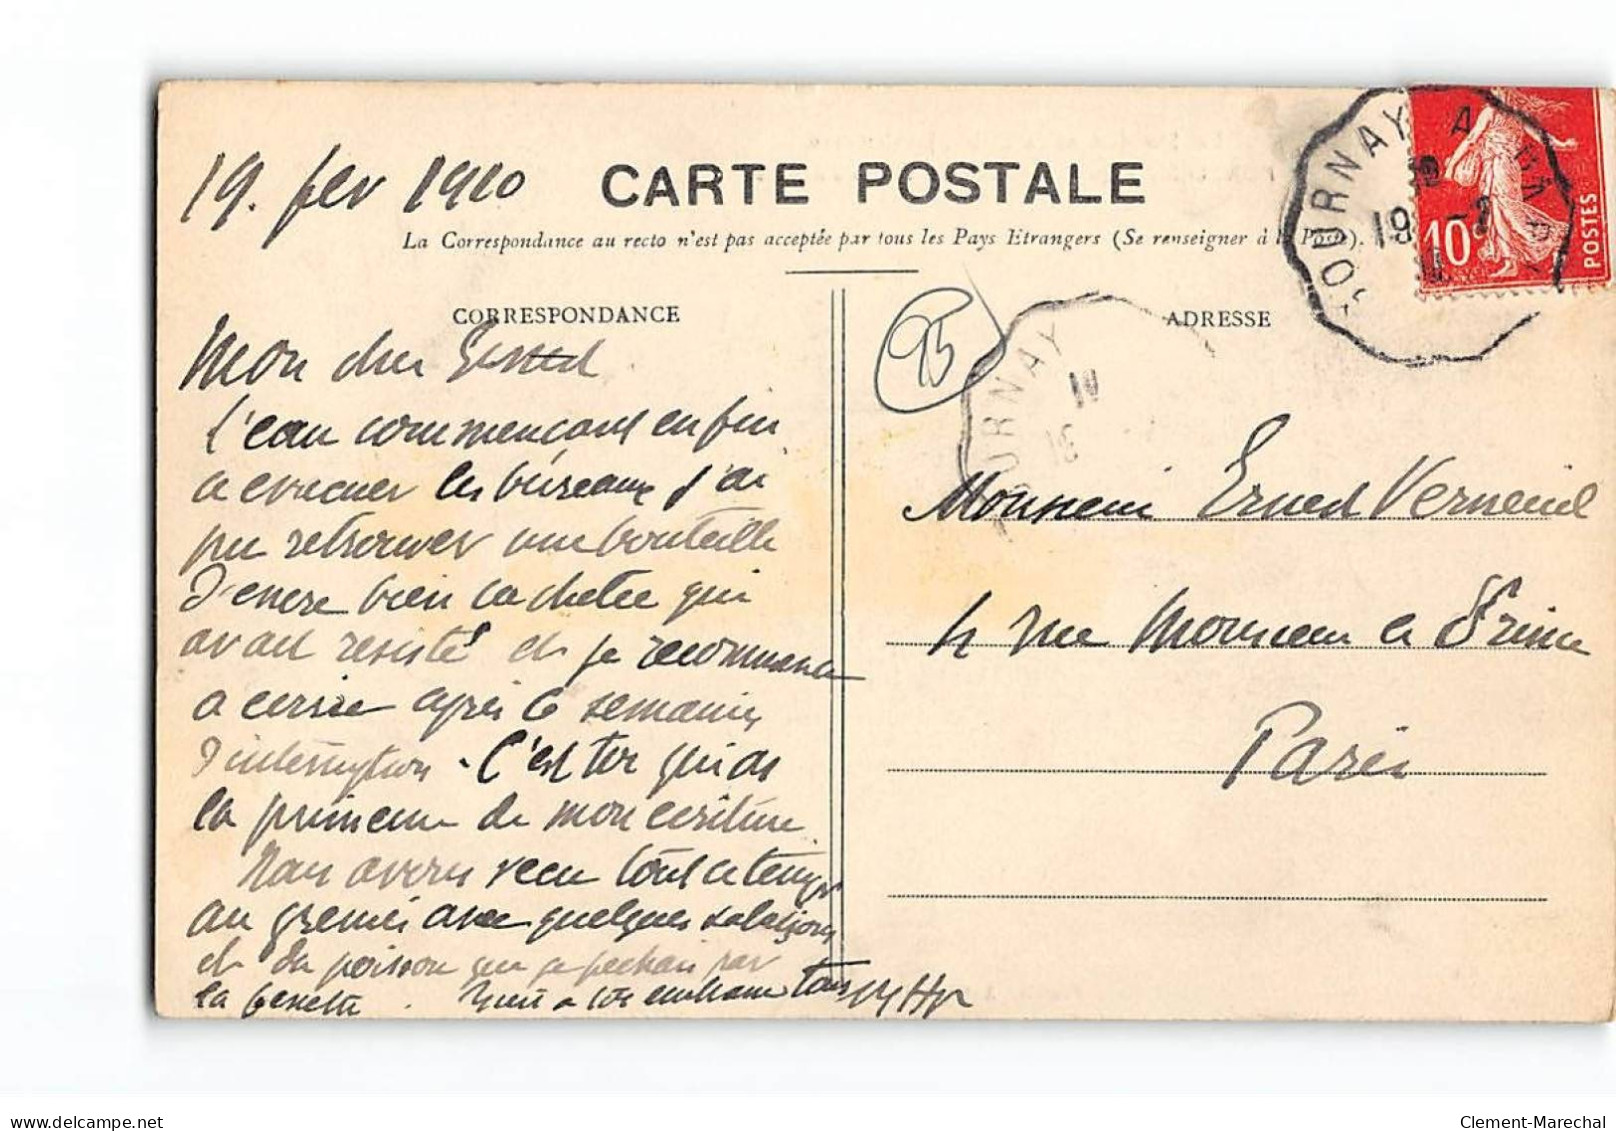 19. fev 1910
CARTE POSTALE
La Correspondance au recto n'est pas acceptée par tous les Pays Etrangers (Se renseigner à la Poste).
GOURNAY A PARIS
19 -2
10
10c
POSTES
CORRESPONDANCE
ADRESSE
95
GOURNAY
Mon cher Ernest
l'eau commencant enfin
a evacuer les bureaux j'ai
pu retrouver une bouteille
d'encre bien cachetee qui
avait resisté et je recommence
a ecrire après 6 semaines
d'interruption. C'est toi qui as
la primeur de mon ecriture
Nous avons vecu tout ce temps
au grenier avec quelques salaisons
et du poisson que je pechais par
la fenetre. Yvré a tous
Monsieur Ernest Verneuil
4 rue Monsieur le Prince
Paris
Clement-Marechal